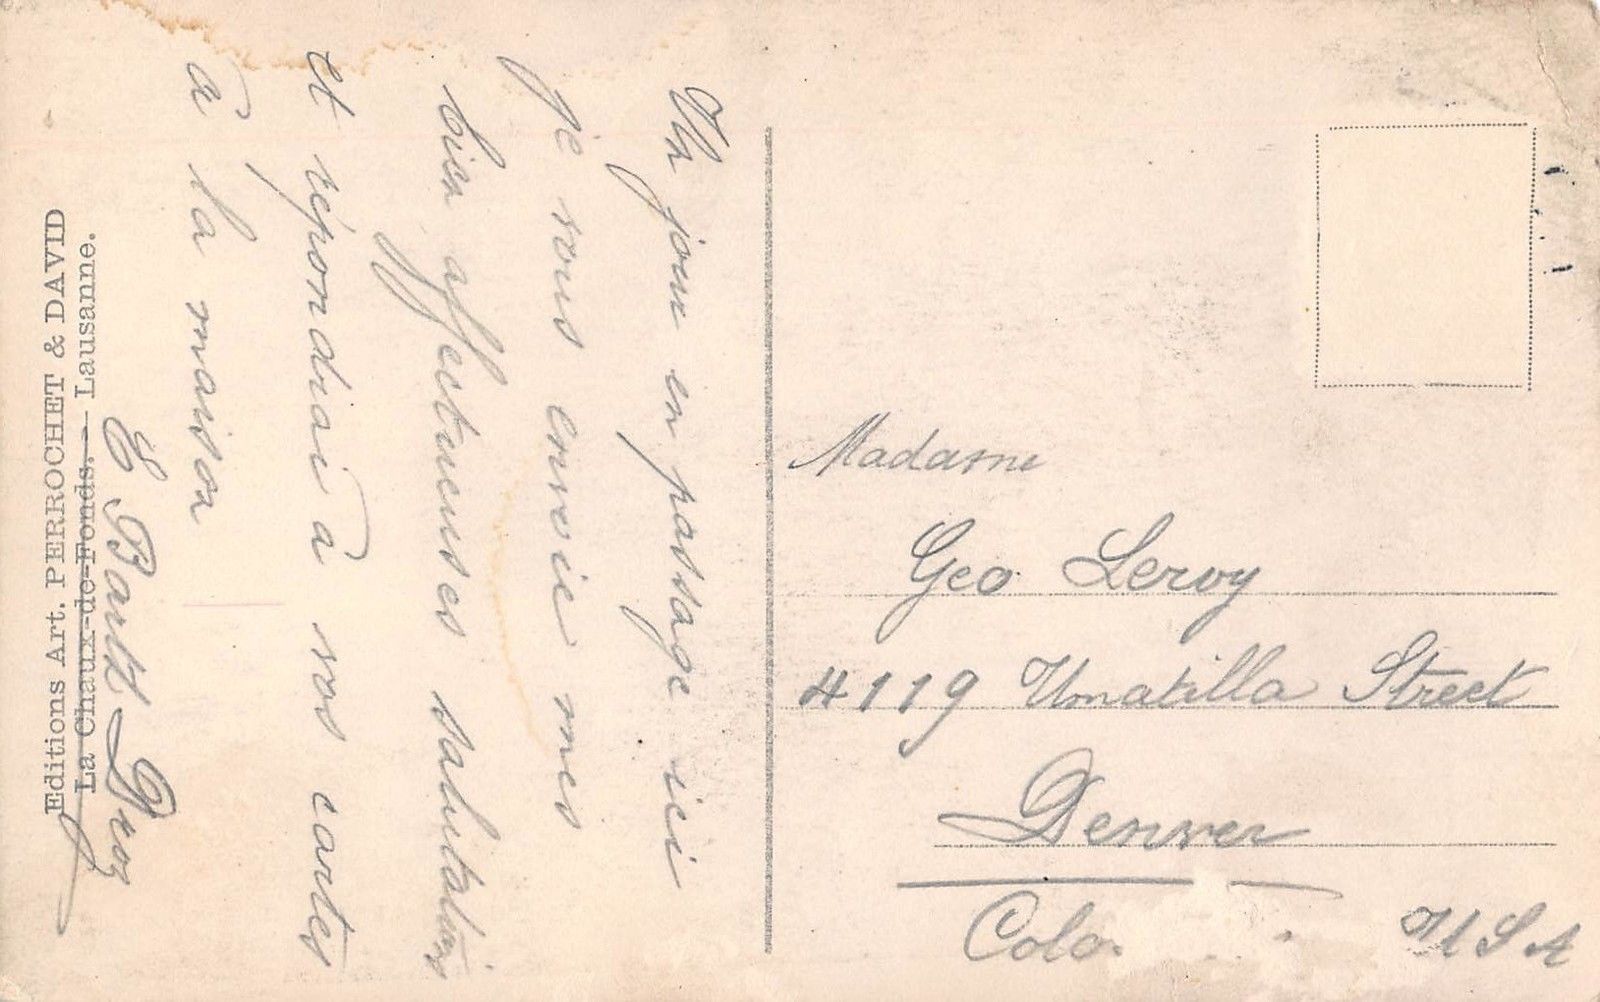 Un jour en passage ici
je vous envoie mes
bien affectueuses salutations
et répondrai à vos cartes
à la maison
E Barth Droz
Editions Art. PERROCHET & DAVID
La Chaux-de-Fonds. — Lausanne.
Madame
Geo Leroy
4119 Umatilla Street
Denver
Colo. USA